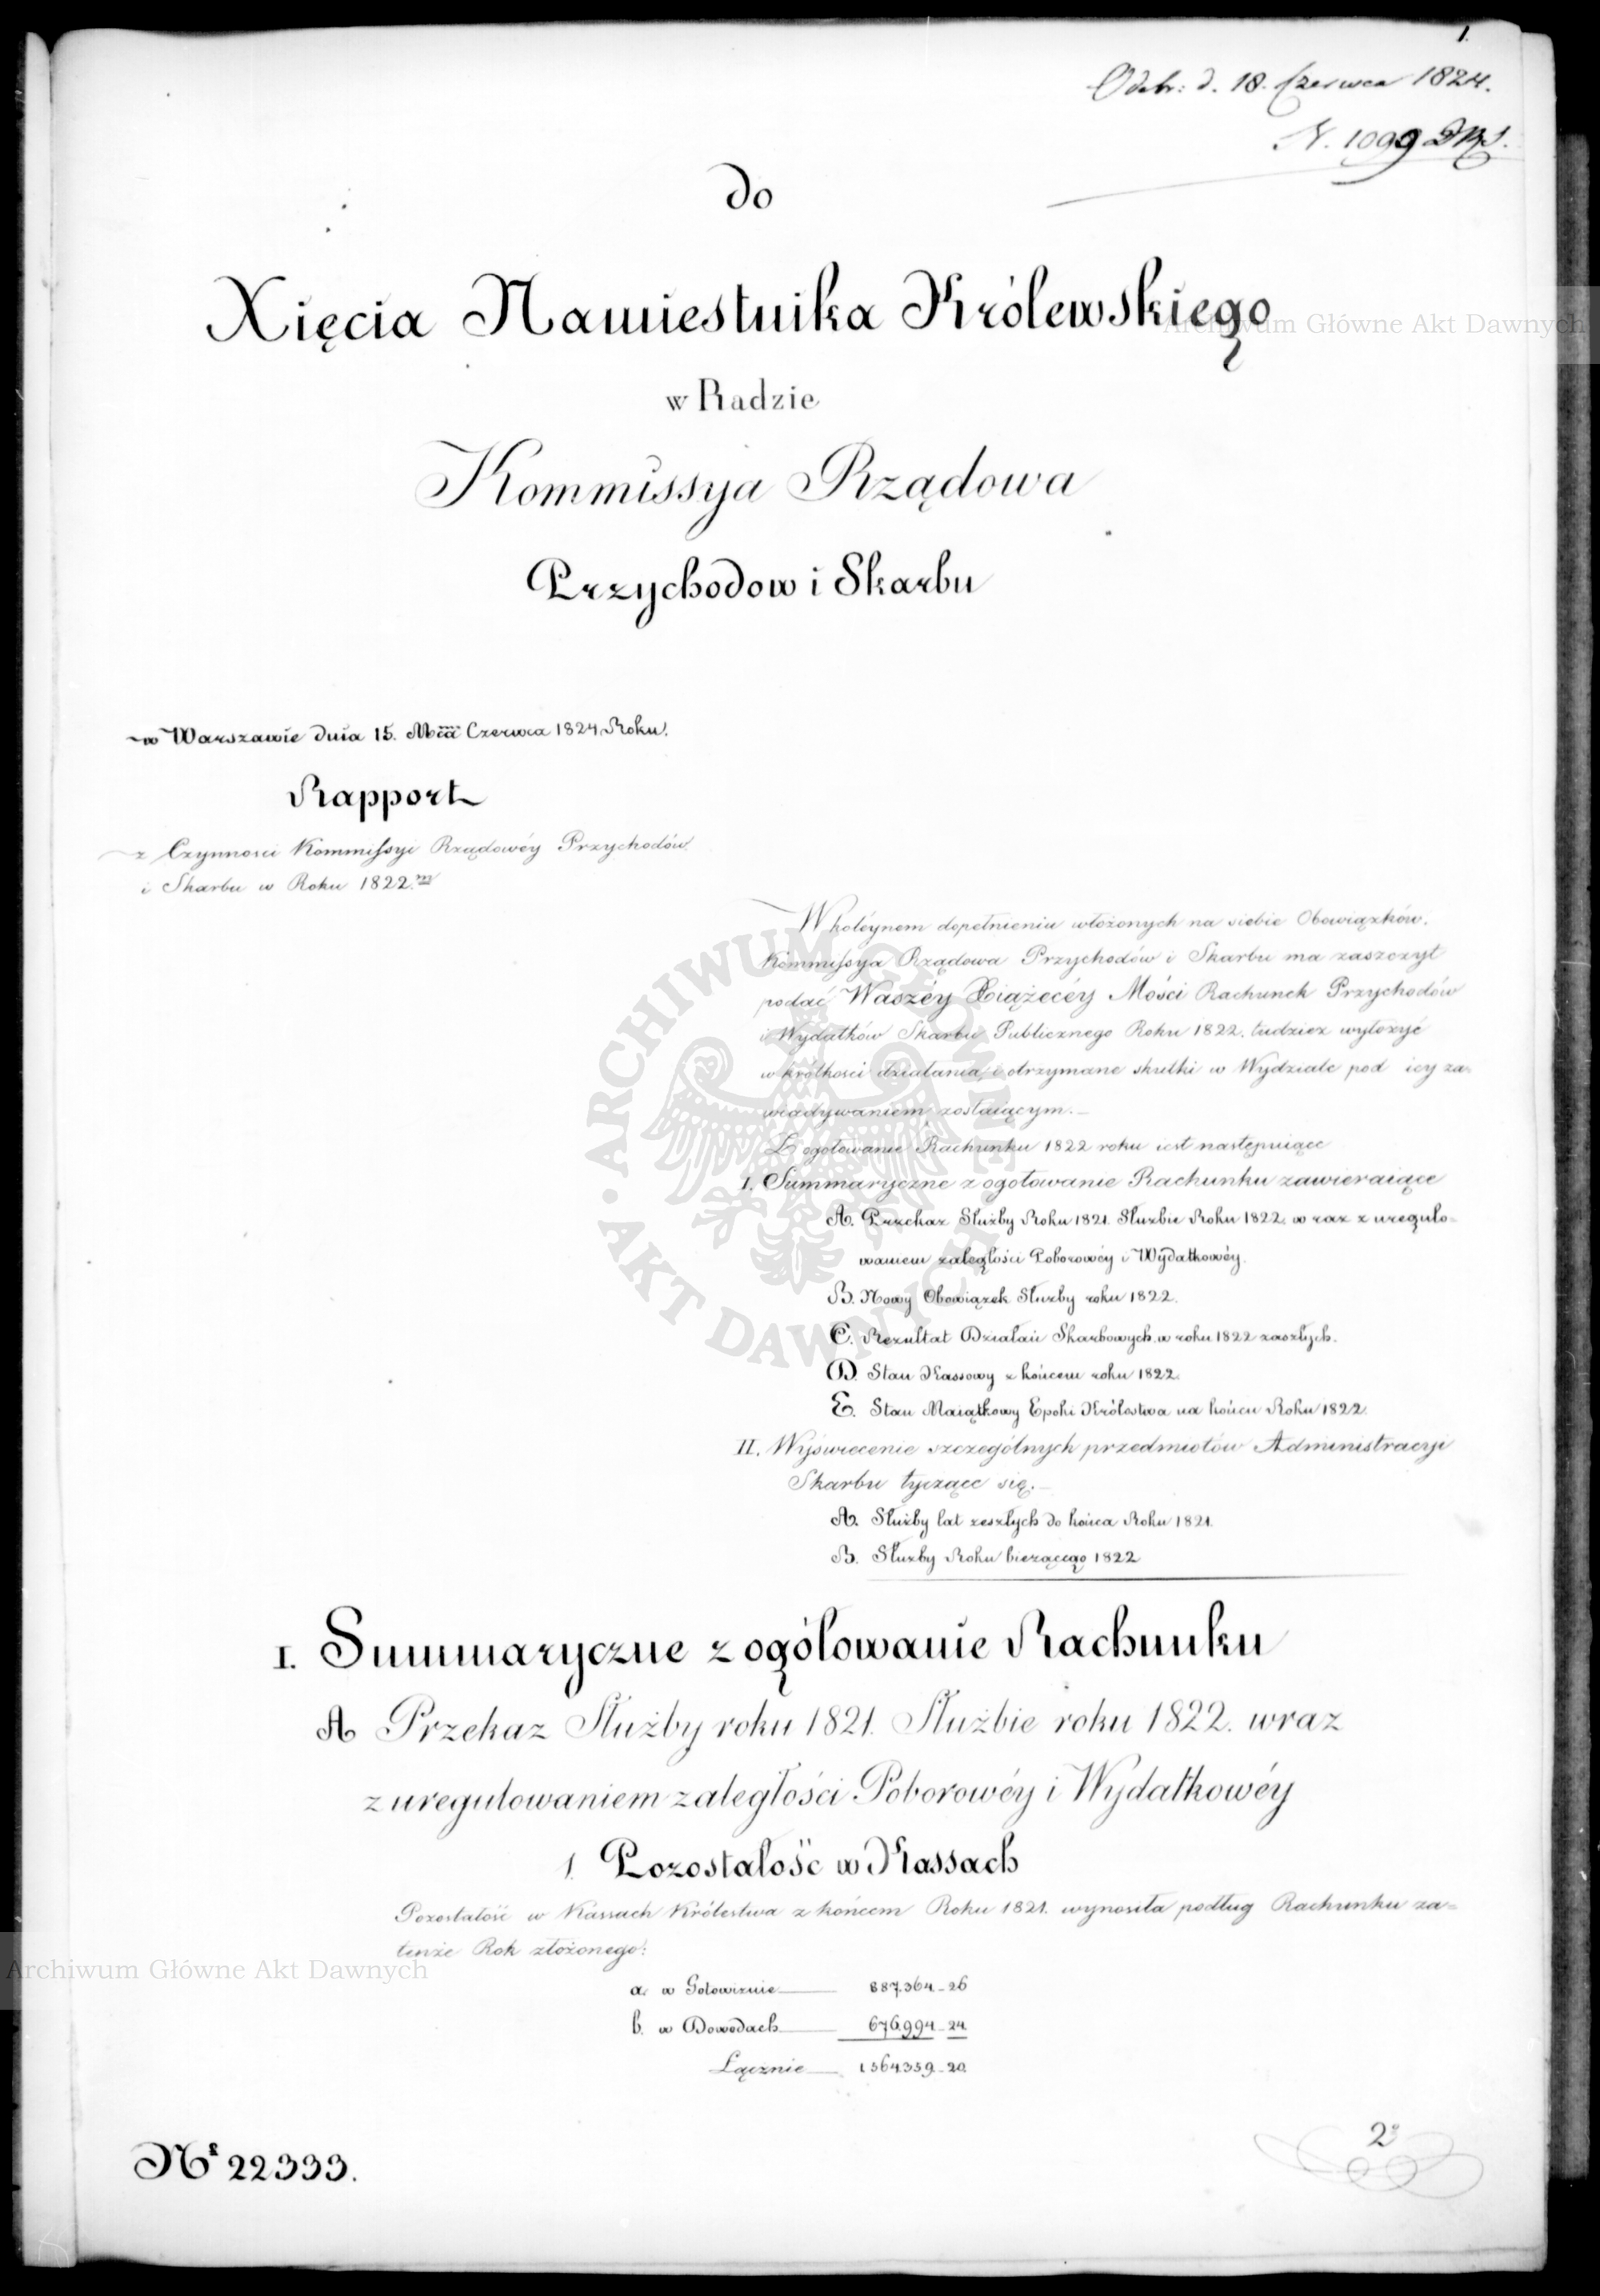 1.
Odebr: d. 18. Czerwca 1824.
N. 1099
do
Xięcia Namiestnika Królewskiego
w Radzie
Kommissya Rządowa
Przychodow i Skarbu
w Warszawie dnia 15. Mca Czerwca 1824 Roku.
Rapport
z Czynnosci Kommissyi Rządowéy Przychodów
i Skarbu w Roku 1822.
W koléynem dopełnieniu włożonych na siebie Obowiązków.
Kommissya Rządowa Przychodów i Skarbu ma zaszczyt
podać Waszéy Xiążęcéy Mości Rachunek Przychodów
i Wydatków Skarbu Publicznego Roku 1822. tudzież wyłożyć
w krótkości działania, i otrzymane skutki w Wydziale pod icy za=
wiadywaniem zostaiącym.
Zogołowanie Rachunku 1822 roku iest następuiące
I. Summaryczne zogołowanie Rachunku zawieraiące
A. Przekaz Służby Roku 1821. Służbie Roku 1822. w raz z uregulo=
waniem zaległości Poborowéy i Wydatkowéy.
B. Nowy Obowiązek Służby roku 1822.
C. Rezultat Działań Skarbowych w roku 1822 zaszłych.
D. Stan Kassowy z końcem roku 1822.
E. Stan Maiątkowy Epoki Królestwa na końcu Roku 1822.
II. Wyświecenie szczególnych przedmiotów Administracyi
Skarbu tyczące się.
A. Służby lat zeszłych do końca Roku 1821.
B. Służby Roku bierzącego 1822
I. Summaryczne zogólowanie Rachunku
A Przekaz Służby roku 1821. Służbie roku 1822. wraz
z uregulowaniem zaległości Poborowéy i Wydatkowéy
1. Pozostałość w Kassach
Pozostałość w Kassach Królestwa z końcem Roku 1821. wynosiła podług Rachunku za=
tenże Rok złożonego:
a. w Gotowiznie 887.364 - 26
b. w Dowodach 676.994 - 24.
Łącznie 1.564.359 - 20.
Nr 22333.
2
Archiwum Główne Akt Dawnych
Archiwum Główne Akt Dawnych
ARCHIWUM GŁÓWNE AKT DAWNYCH